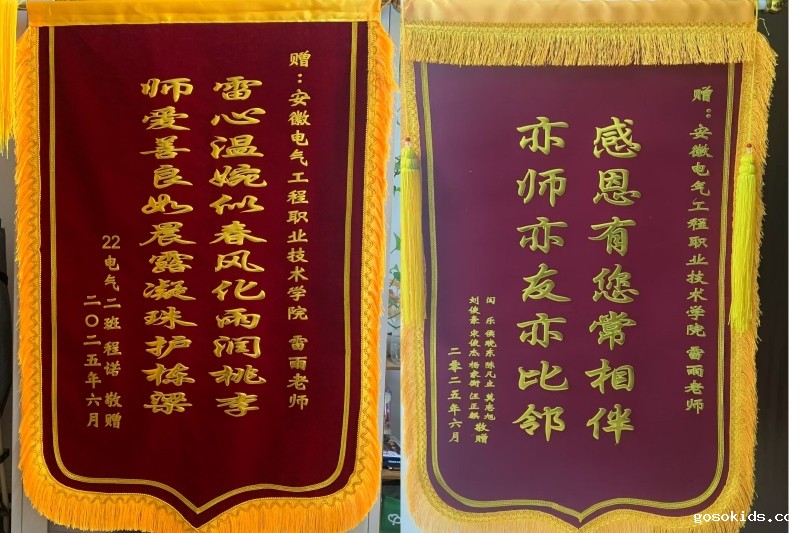 赠：安徽电气工程职业技术学院 雷雨老师
雷心温婉似春风化雨润桃李
师爱善良如晨露凝珠护栋梁
22电气二班 程诺 敬赠
二〇二五年六月
赠：安徽电气工程职业技术学院 雷雨老师
感恩有您常相伴
亦师亦友亦比邻
闵 乐 侯晓东 陈凡立 莫志旭
刘俊豪 宋俊杰 杨家衡 汪正麒 敬赠
二零二五年六月
gosokids.co